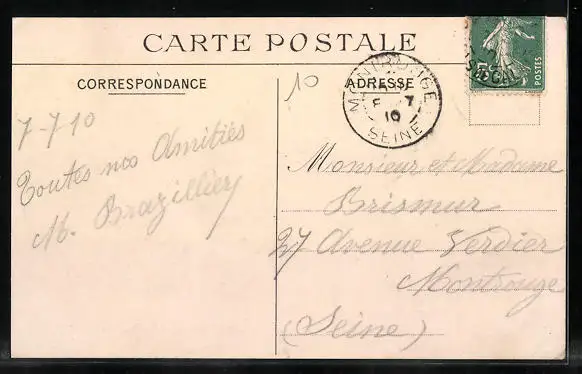 CARTE POSTALE
CORRESPONDANCE
10
ADRESSE
MONTROUGE
7
10
SEINE
5c
POSTES
7-7-10
Toutes nos Amitiés
M. Brazillier
Monsieur et Madame
Brismur
27 Avenue Verdier
Montrouge
(Seine)